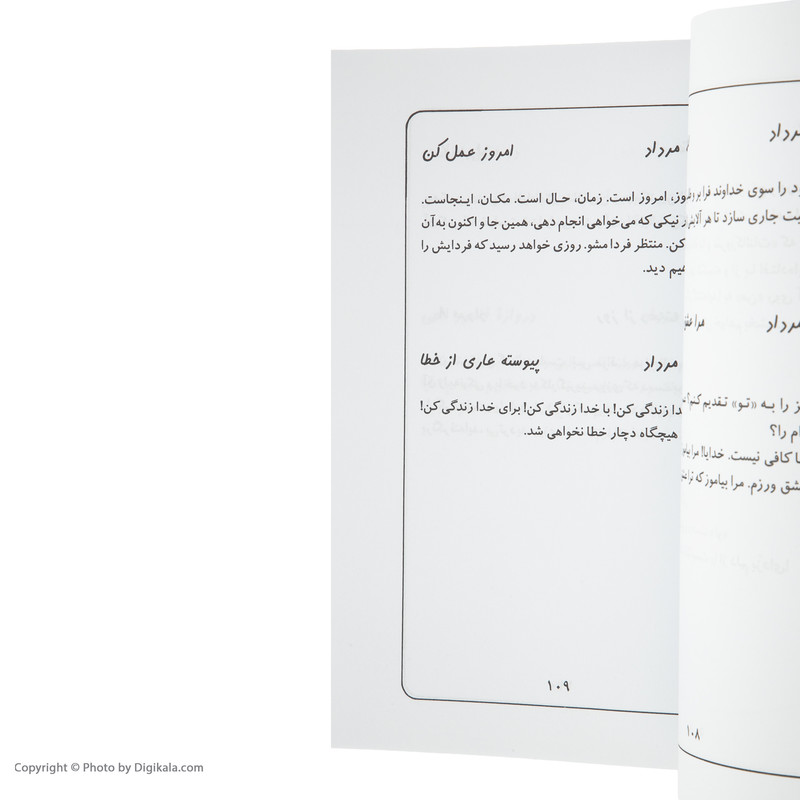 مرداد
د را سوی خداوند فرا بر
یت جاری سازد تا هر آلایش
مرداد
مرا عشق
ز را به «تو» تقدیم کنم؟
ام را؟
ا کافی نیست. خدایا! مرا بیاموز
شق ورزم. مرا بیاموز که ترا
۱۰۸
مرداد امروز عمل کن
وز، امروز است. زمان، حال است. مکان، اینجاست.
نیکی که می‌خواهی انجام دهی، همین جا و اکنون به آن
کن. منتظر فردا مشو. روزی خواهد رسید که فردایش را
هیم دید.
مرداد پیوسته عاری از خطا
دا زندگی کن! با خدا زندگی کن! برای خدا زندگی کن!
هیچگاه دچار خطا نخواهی شد.
۱۰۹
Copyright © Photo by Digikala.com